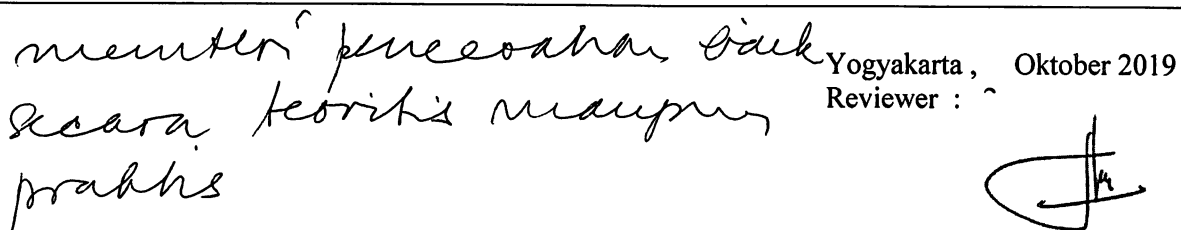 memberi pencerahan baik
secara teoritis maupun
praktis
Yogyakarta , Oktober 2019
Reviewer :